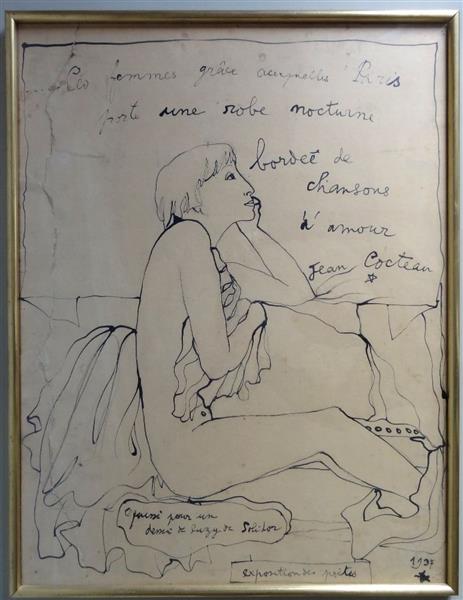 femmes grâce auxquelles Paris
porte une robe nocturne
bordeé de
chansons
d'amour
Jean Cocteau
pour un
dessin de Suzy de Solidor
exposition des poètes
1937